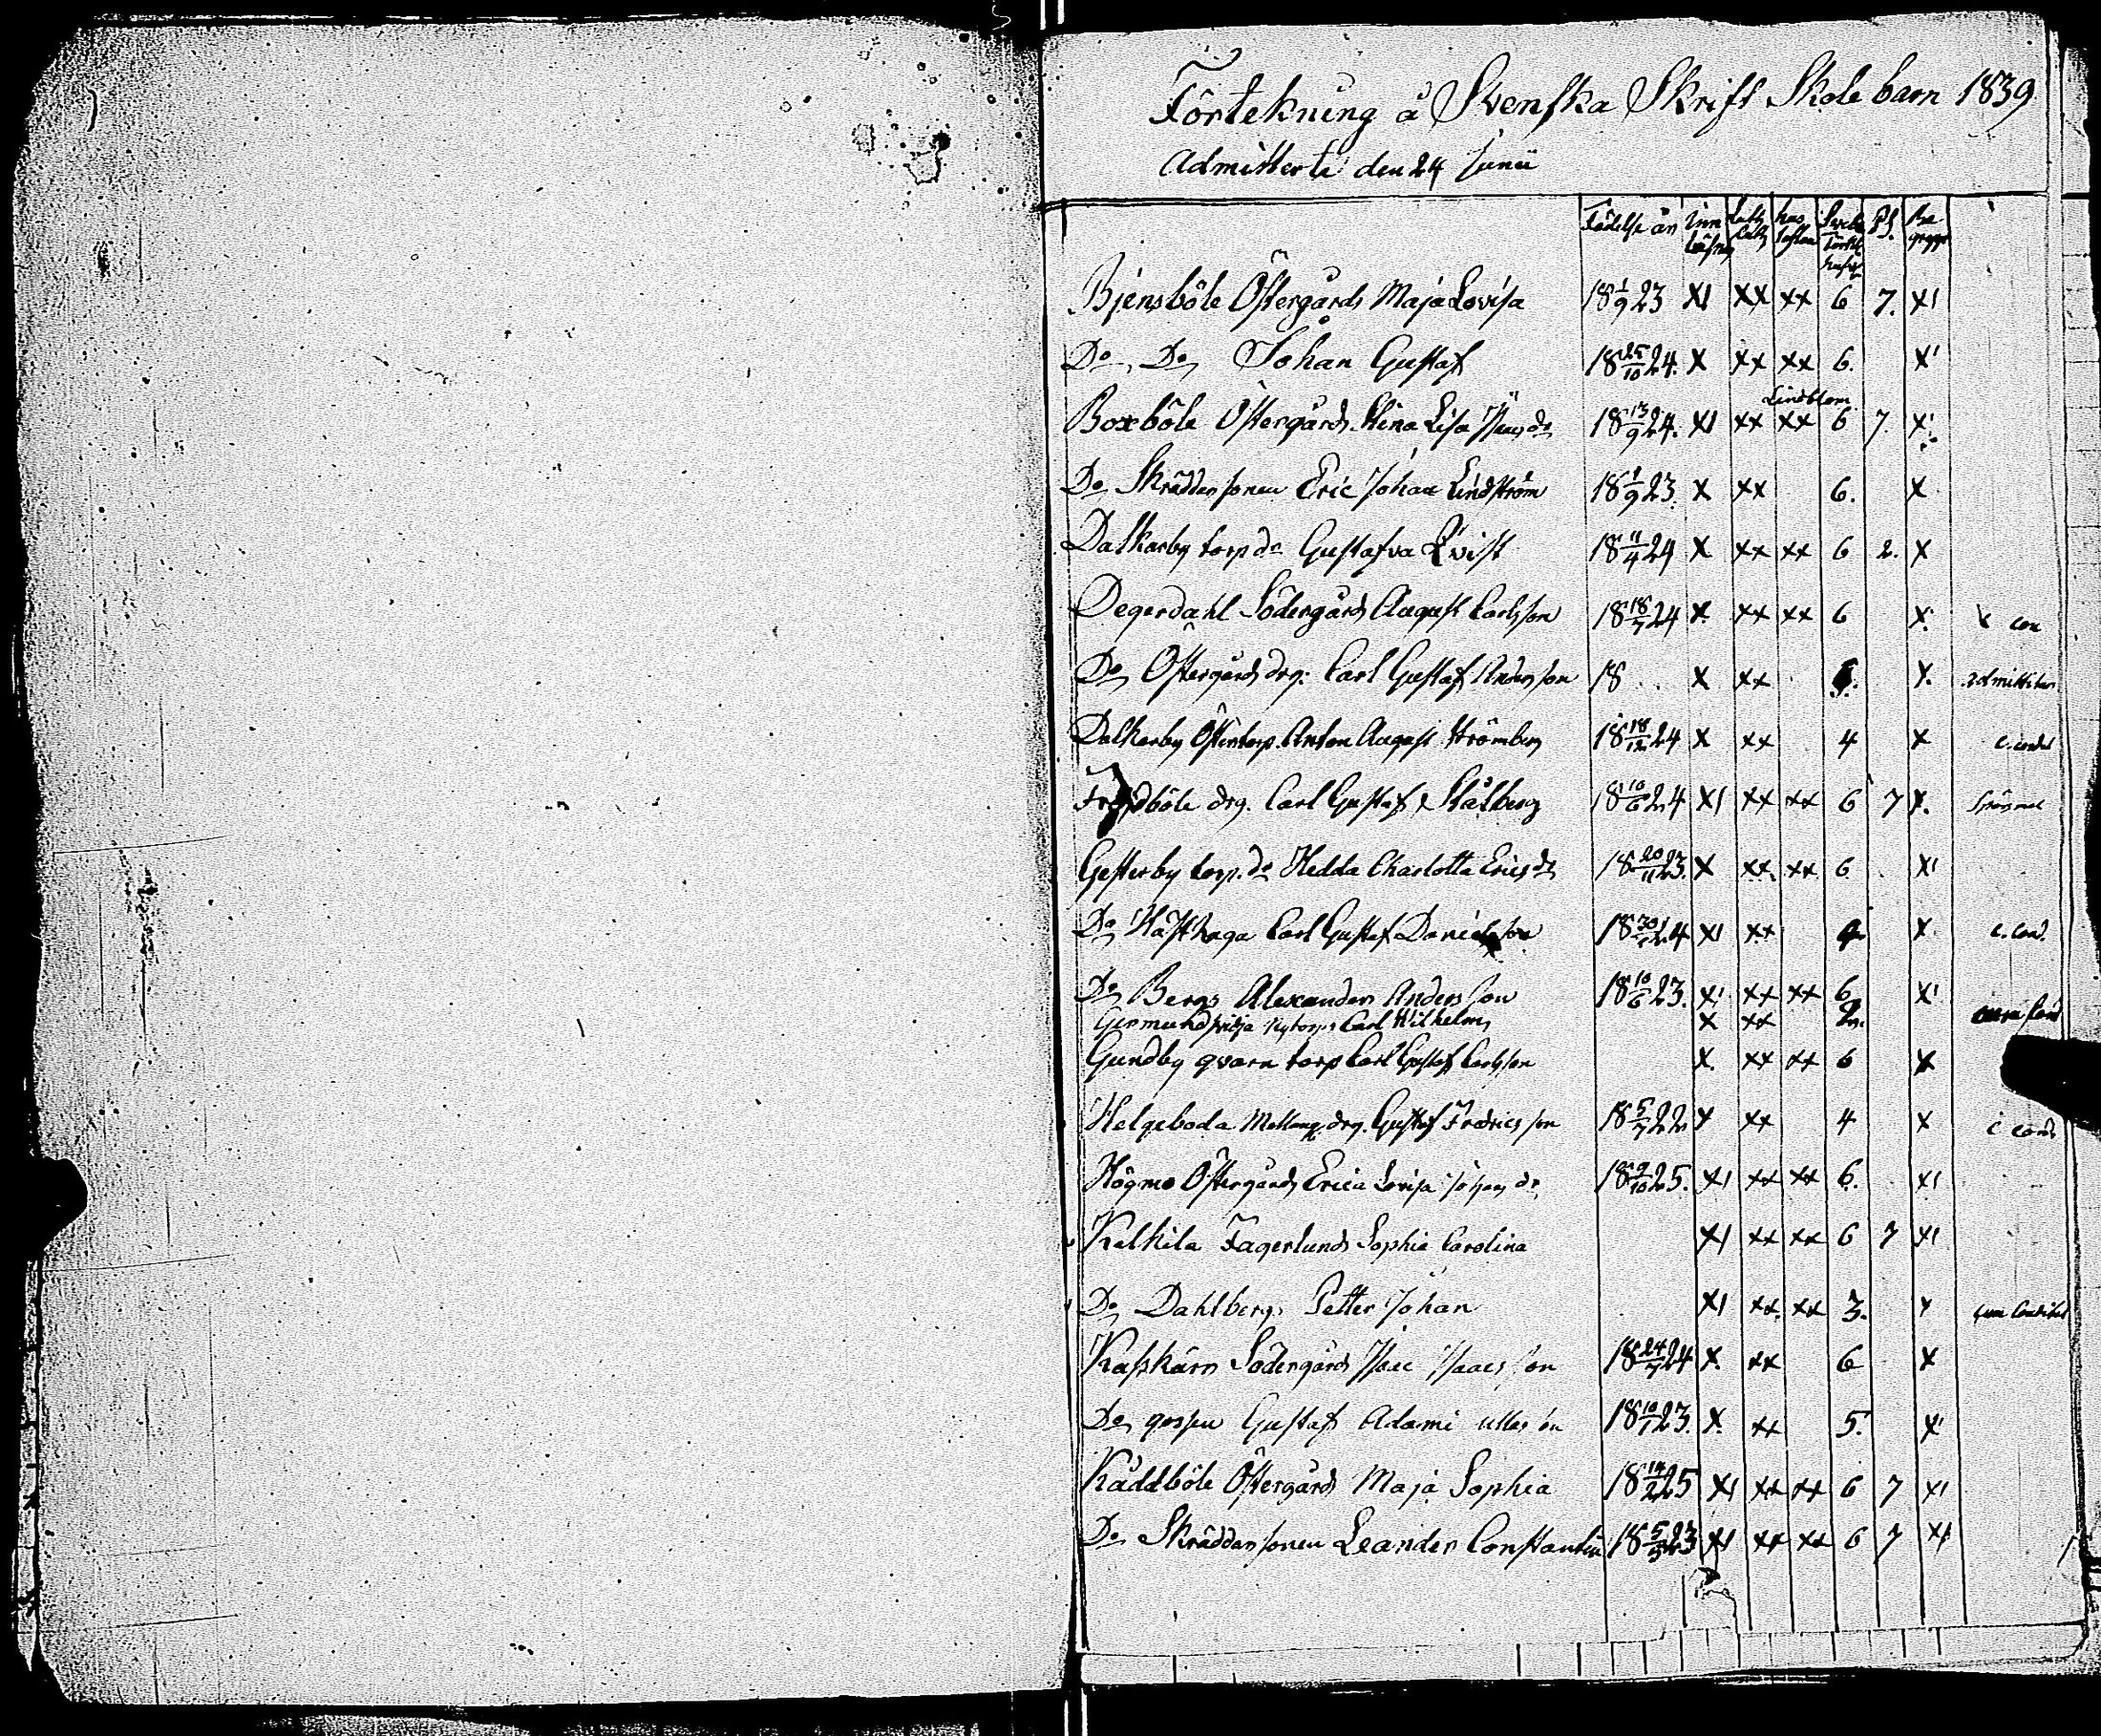 Förtekning å Svenska Skrift Skole barn 1839
Admitterte den 24 Junii
Födelse år Inn läsning hus taflan Be grepp
Bjensböle Östergårds Maja Lovisa 18 1/9 23 XI XX XX 6 7. XI
Do Do Johan Gustaf 18 25/10 24. X XX XX 6. X'
Lindblom
Boxböle Östergårds Stina Lisa dr 18 13/9 24. XI XX XX 6 7. X'
Do Skräddar sonen Eric Johan Lindström 18 /9 23. X XX 6. X
Dalkarby torp dr Gustafva Qvist 18 11/4 24 X XX XX 6 2. X
Degerdahl Södergårds August Carlsson 18 18/7 24 X XX XX 6 X. X con
Do Östergårds drg. Carl Gustaf Andersson 18 X XX X. admittitur
Dalkarby Östertorp. Anton August Strömberg 18 18/12 24 X XX 4 X c. condit
böle drg. Carl Gustaf Stålberg 18 10/6 24 XI XX XX 6 7 X.
Gesterby torp. dr Hedda Charlotta Ericsdr 18 20/11 23. X XX XX 6 XI
Do Hästhaga Carl Gustaf Danielsson 18 30/ 24 XI XX X c. Cond.
Do Bergs Alexander Andersson 18 10/6 23. X' XX XX 6 X'
Germundsvidja Nytorps Carl Wilhelm X XX
Gundby qvarn torp Carl Gustaf Carlsson X. XX XX 6 X
Helgeboda Mellang. drg. Gustaf Fredricsson 18 5/7 22 X XX 4 X c cond.
Högmo Östergårds Erica Lovisa Johansdr 18 9/10 25. XI XX XX 6. XI
Kalkila Fagerlunds Sophia Carolina XI XX XX 6 7 XI
Do Dahlbergs Petter Johan XI XX XX 3. X
Kasskärr Södergårds Isac Isacsson 18 24/7 24 X XX 6 X
Do gossen Gustaf Adami 18 10/1 23. X. XX 5. X'
Käddböle Östergårds Maja Sophia 18 14/2 25 XI XX XX 6 7 XI
Do Skräddar sonen Leander Constantin 18 5/3 23 XI XX XX 6 7 XI